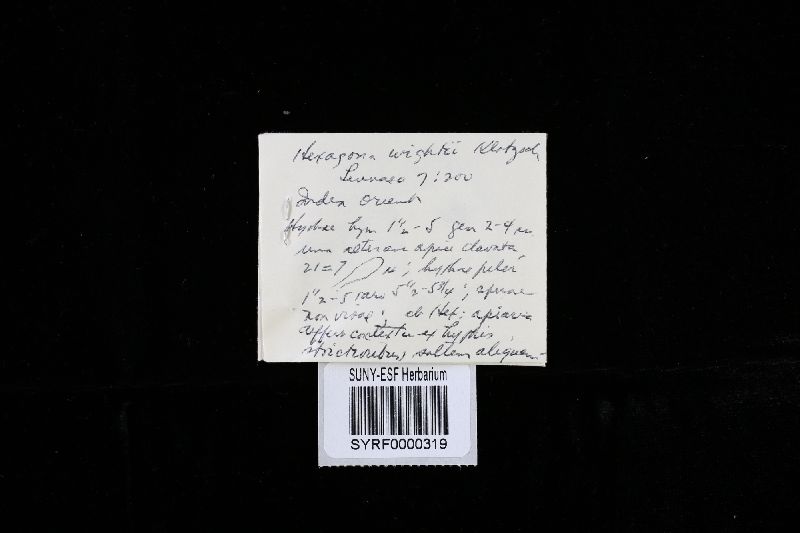 Hexagona wightii Klotzsch
Linnaea 7:200
Index orient
Hyphae hym 1½-5 gen 2-4
apice clavata
21=7 ; hyphae pilei
1½-5 raro 5½-5¾ ; sporae
non visae ; ab Hex: apiaria
differt contextu ex hyphis
strictioribus, saltem aliquan-
SUNY-ESF Herbarium
SYRF0000319